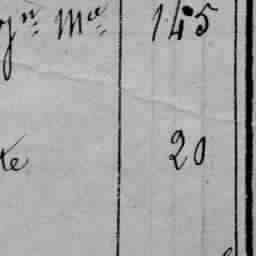 gn Mce 145
te 20